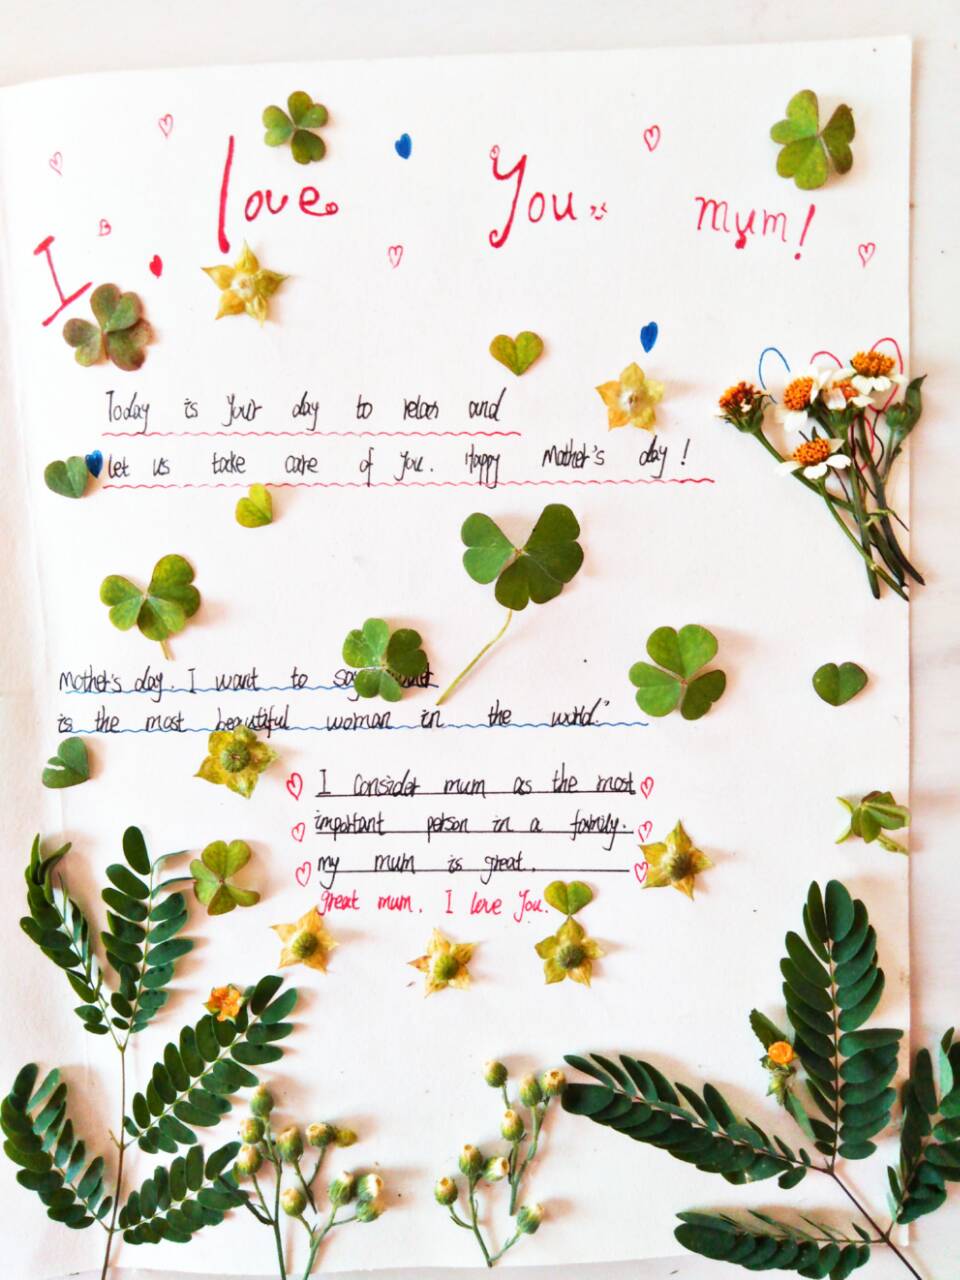 I love You mum!
Today is your day to relax and
let us take care of you. Happy Mother's day!
Mother's day. I want to say
is the most beautiful woman in the world."
I consider mum as the most
important person in a family.
my mum is great.
great mum. I love you.